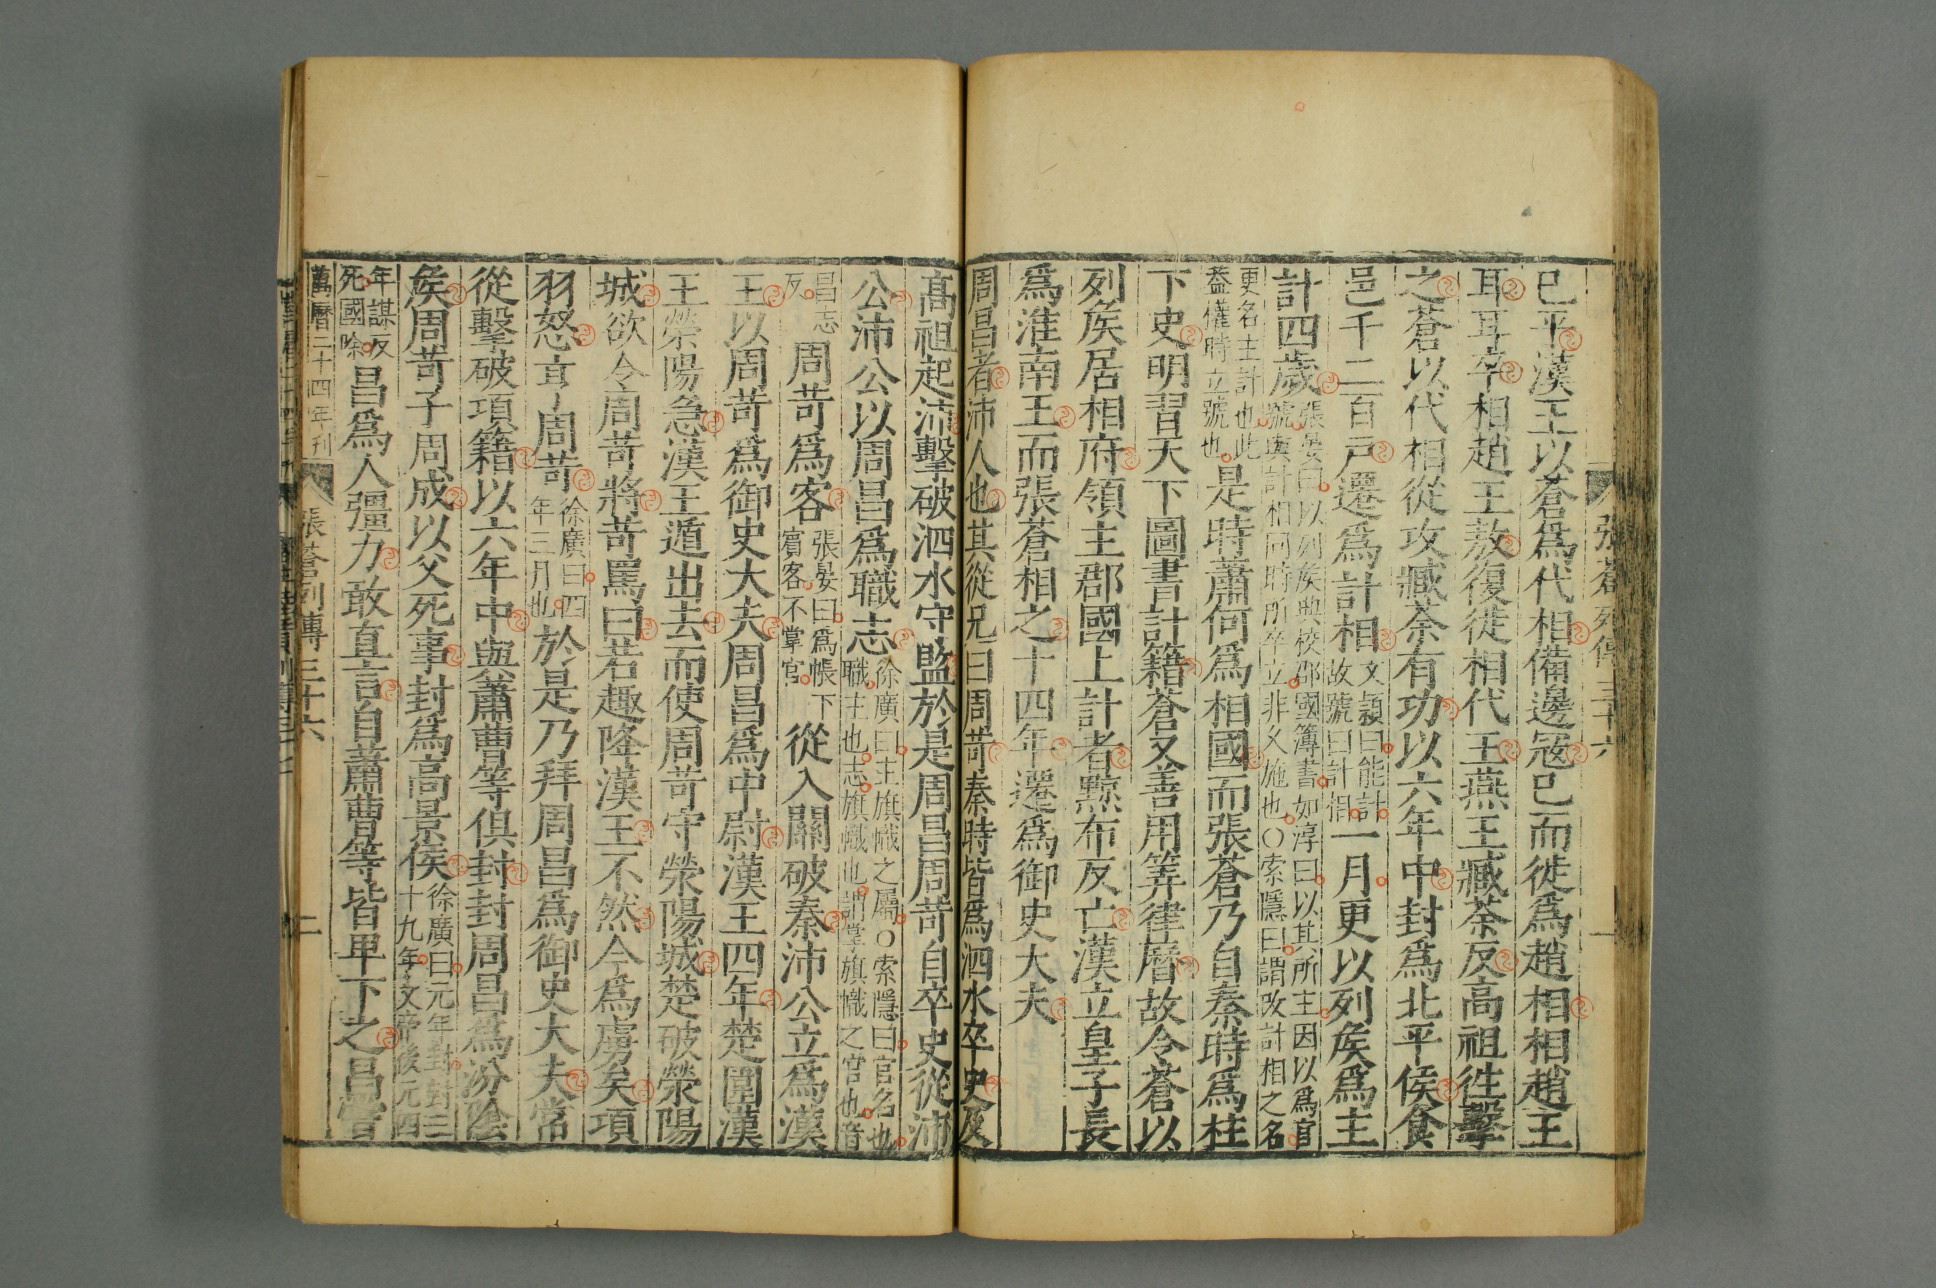 已平漢王以蒼爲代相備邊寇已而徙爲趙相相趙王
耳耳卒相趙王敖復徙相代王燕王臧荼反高祖徃擊
之蒼以代相從攻臧荼有功以六年中封爲北平侯食
邑千二百戸遷爲計相文穎曰能計故號曰計相一月更以列矦爲主
計四歲張晏曰以列侯典校郡國簿書如淳曰以其所主因以爲官號與計相同時所卒立非久施也○索隱曰謂改計相之名
更名主計也此蓋權時立號也是時蕭何爲相國而張蒼乃自秦時爲柱
下史明習天下圖書計籍蒼又善用筭律曆故令蒼以
列矦居相府領主郡國上計者黥布反亡漢立皇子長
爲淮南王而張蒼相之十四年遷爲御史大夫
周昌者沛人也其從兄曰周苛秦時皆爲泗水卒史及
高祖起沛擊破泗水守監於是周昌周苛自卒史從沛
公沛公以周昌爲職志徐廣曰主旗幟之屬○索隱曰官名也職主也志旗幟也謂掌旗幟之官也音
昌志反周苛爲客張晏曰爲帳下賓客不掌官從入關破秦沛公立爲漢
王以周苛爲御史大夫周昌爲中尉漢王四年楚圍漢
王滎陽急漢王遁出去而使周苛守滎陽城楚破滎陽
城欲令周苛將苛罵曰若趣降漢王不然今爲虜矣項
羽怒亨周苛徐廣曰四年三月也於是乃拜周昌爲御史大夫常
從擊破項籍以六年中與蕭曹等俱封封周昌爲汾陰
矦周苛子周成以父死事封爲高景侯徐廣曰元年封封三十九年文帝後元四
年謀反死國除昌爲人彊力敢直言自蕭曹等皆卑下之昌嘗
萬曆二十四年刊 張蒼列傳三十六 二